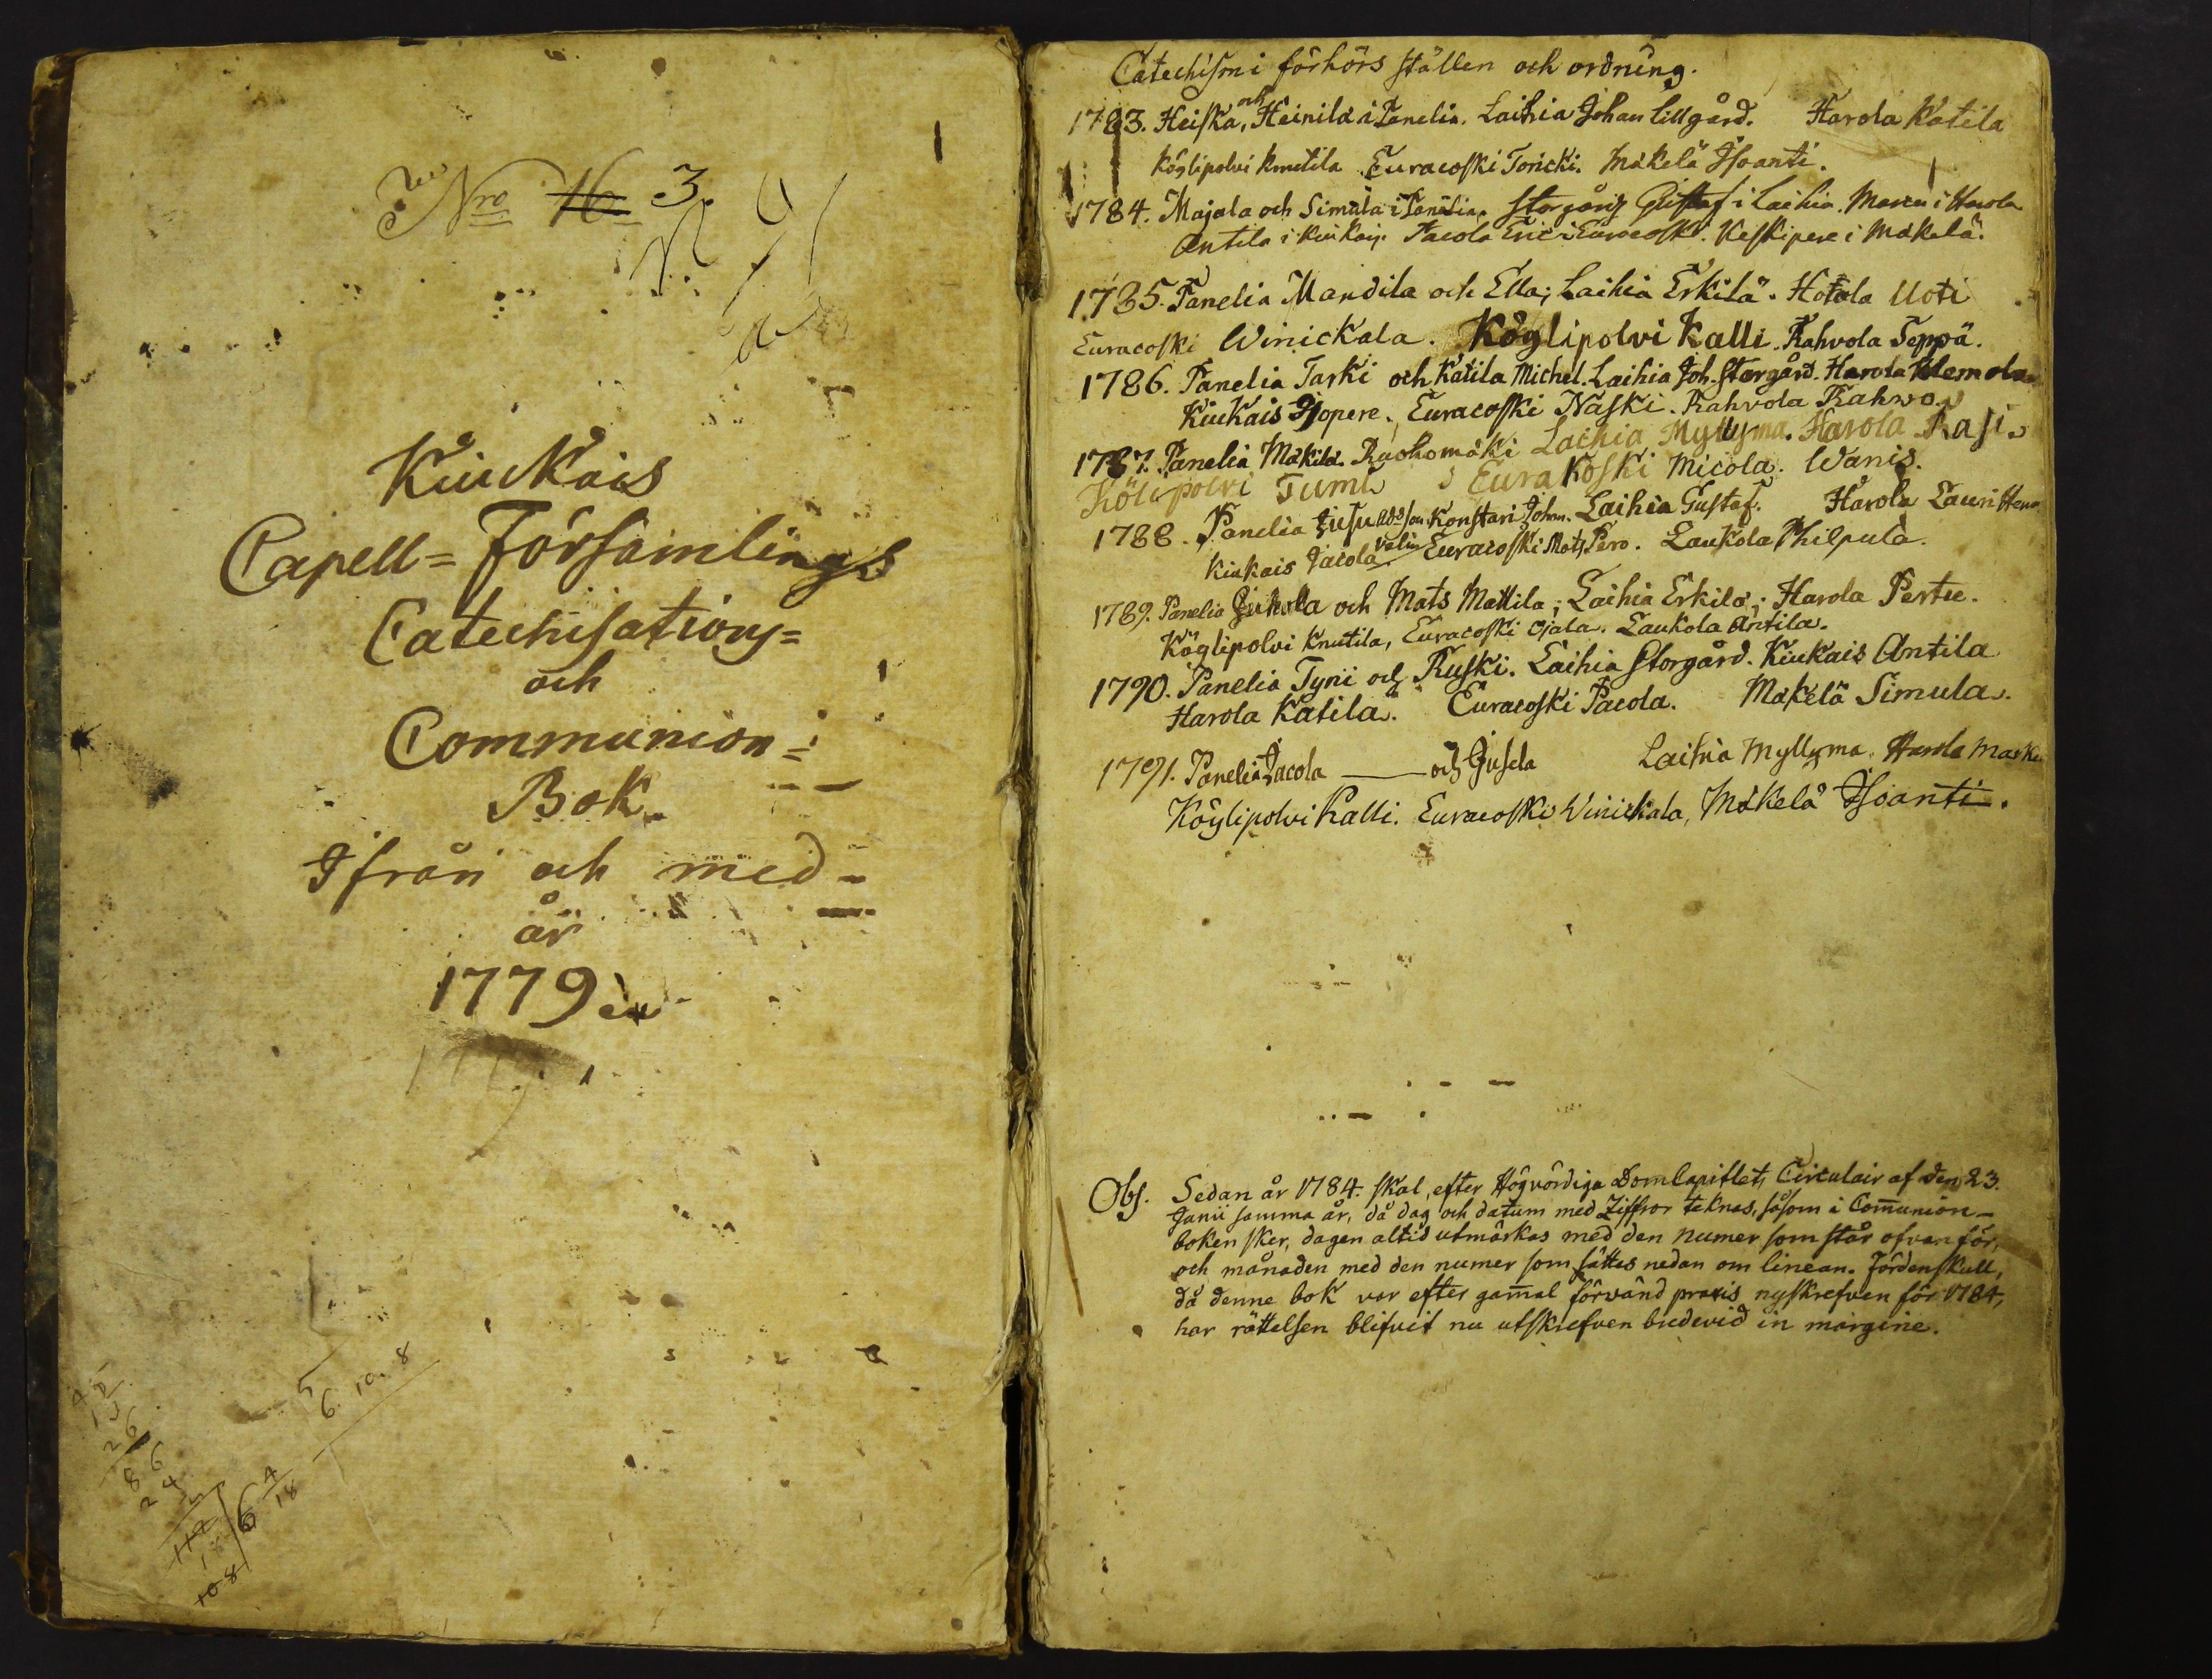 Nro 16 3.
Kiukais
Capell= Församlings
Catechisations=
och
Communion=
Bok
Ifrån och med
år
1779
5
6. 10. 8
26
86
24
6
18
108
Catechismi förhörs ställen och ordning.
1783. Heiska, och Heinilä i Panelia. Laihia Johan Lillgård. Harola Katila
Köylipolvi Knutila Euracoski Toricki. Mäkelä Isoanti.
1784. Majala och Simula i Panelia. Storgårds Gustaf i Laihia. Marcu i Harola
Antila i Kiukais. Pacola Eric i Euracoski. Keskipere i Mäkelä.
1785. Panelia Mandila och Ella; Laihia Erkilä. Harola Uoti
Euracoski Winickala. Köylipolvi Kalli. Rahvola Seppä.
1786. Panelia Tarki och Katila Michel. Laihia Joh. Storgård. Harola Klemola
Kiukais Jopere. Euracoski Naski. Rahvola Rahvo.
1787. Panelia Mäkilä. Ruohomäki Laihia Myllyma. Harola Rasi
Kölipolvi Tumi Eurakoski Micola. Wanis.
1788. Panelia Jusu Konstari Johan. Laihia Gustaf. Harola Lauri
Kiukais Jacola Euracoski Mats Pero. Laukola Philpula.
1789. Panelia Jukola och Mats Mattila; Laihia Erkilä; Harola Pertu.
Köylipolvi Knutila, Euracoski Ojala. Laukola Antila.
1790. Panelia Tyni och Ruski. Laihia Storgård. Kiukais Antila
Harola Katila. Euracoski Pacola. Mäkelä Simula.
1791. Panelia Jacola — och Gusela Laihia Myllyma. Harola Marku
Köylipolvi Kalli. Euracoski Winickala, Mäkelä Isoanti.
Obs. Sedan år 1784. skal, efter Högvördiga DomCapitlets Circulair af den 23.
Junii samma år, då dag och datum med Ziffror teknas, såsom i Com̄union-
boken sker, dagen altid utmärkas med den numer som står ofvanför,
och månaden med den numer som sättes nedan om linean. Fördenskull,
då denne bok var efter gam̄al förvänd praxis nyskrefven för 1784,
har rättelsen blifvit nu utskrefven bredevid in margine.